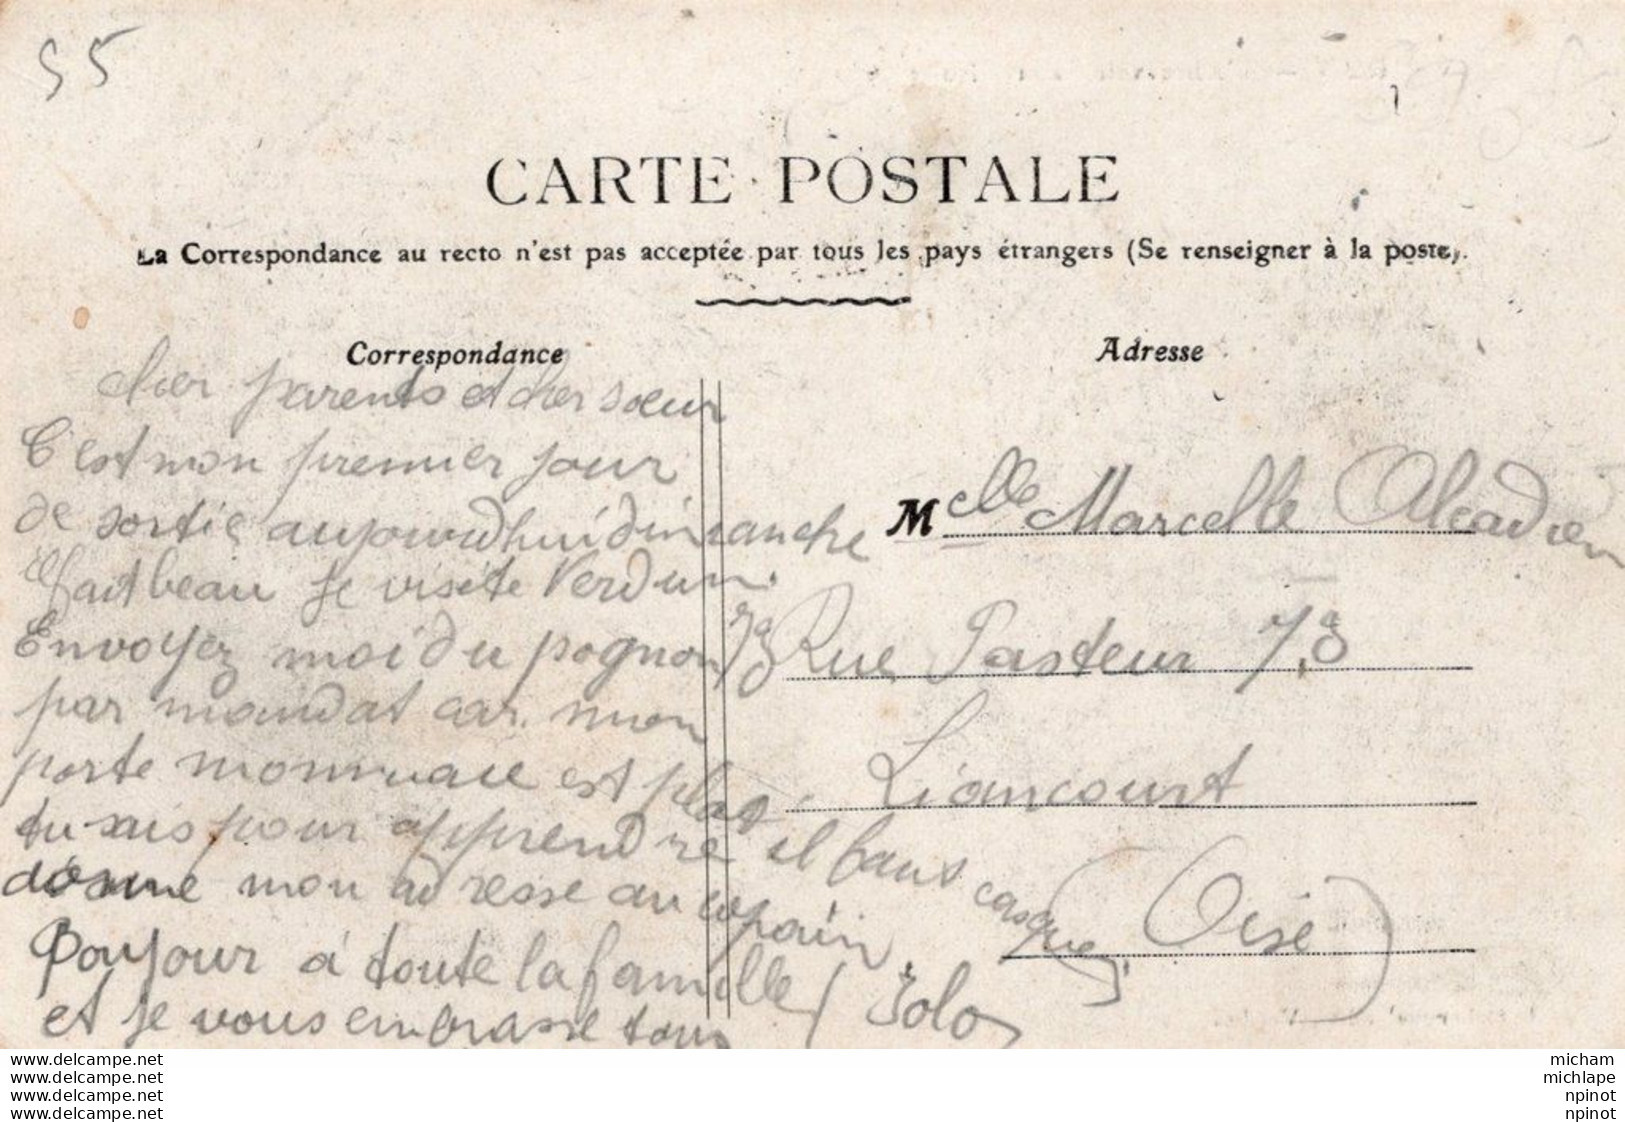 55
CARTE POSTALE
La Correspondance au recto n'est pas acceptée par tous les pays étrangers (Se renseigner à la poste).
Correspondance
Adresse
cher parents et cher soeur
C'est mon premier jour
de sortie aujourdhui dimanche
fait beau je visite Verdun.
Envoyez moi du pognon
par mandat car mon
porte monnaie est plat
tu sais pour apprendre il faut casquer
donne mon adresse au copain
Bonjour à toute la famille
et je vous embrasse tous
Lolo
Melle Marcelle
Rue Pasteur 73
Liancourt
(Oise)
www.delcampe.net
www.delcampe.net
www.delcampe.net
www.delcampe.net
micham
michlape
npinot
npinot